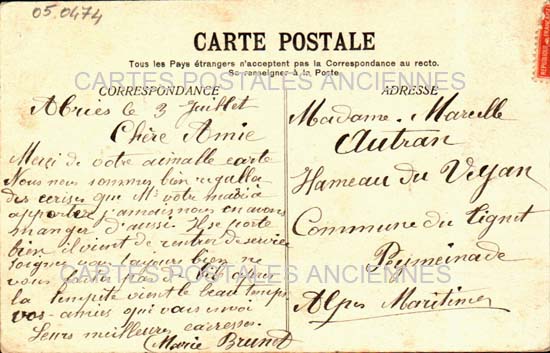 05.0474
CARTE POSTALE
Tous les Pays étrangers n'acceptent pas la Correspondance au recto.
Se renseigner à la Poste
CARTES POSTALES ANCIENNES
CORRESPONDANCE
Abriès le 3 Juillet
Chère Amie
Merci de votre aimable carte
Nous nous sommes bien regallé
des cerises que Mr votre mari a
apporter jamais nous en avons
manger d'aussi. Il se porte
bien il vient de rentrer de service
soigner vous toujours bien ne
vous faites pas de bile apres
la tempète vient le beau temps
vos amies qui vous envoi
Leurs meilleures caresses
Marie Brunet
ADRESSE
Madame Marcelle
Autran
Hameau du Veyan
Commune du Tignet
Peymeinade
Alpes Maritimes
CARTES POSTALES ANCIENNES